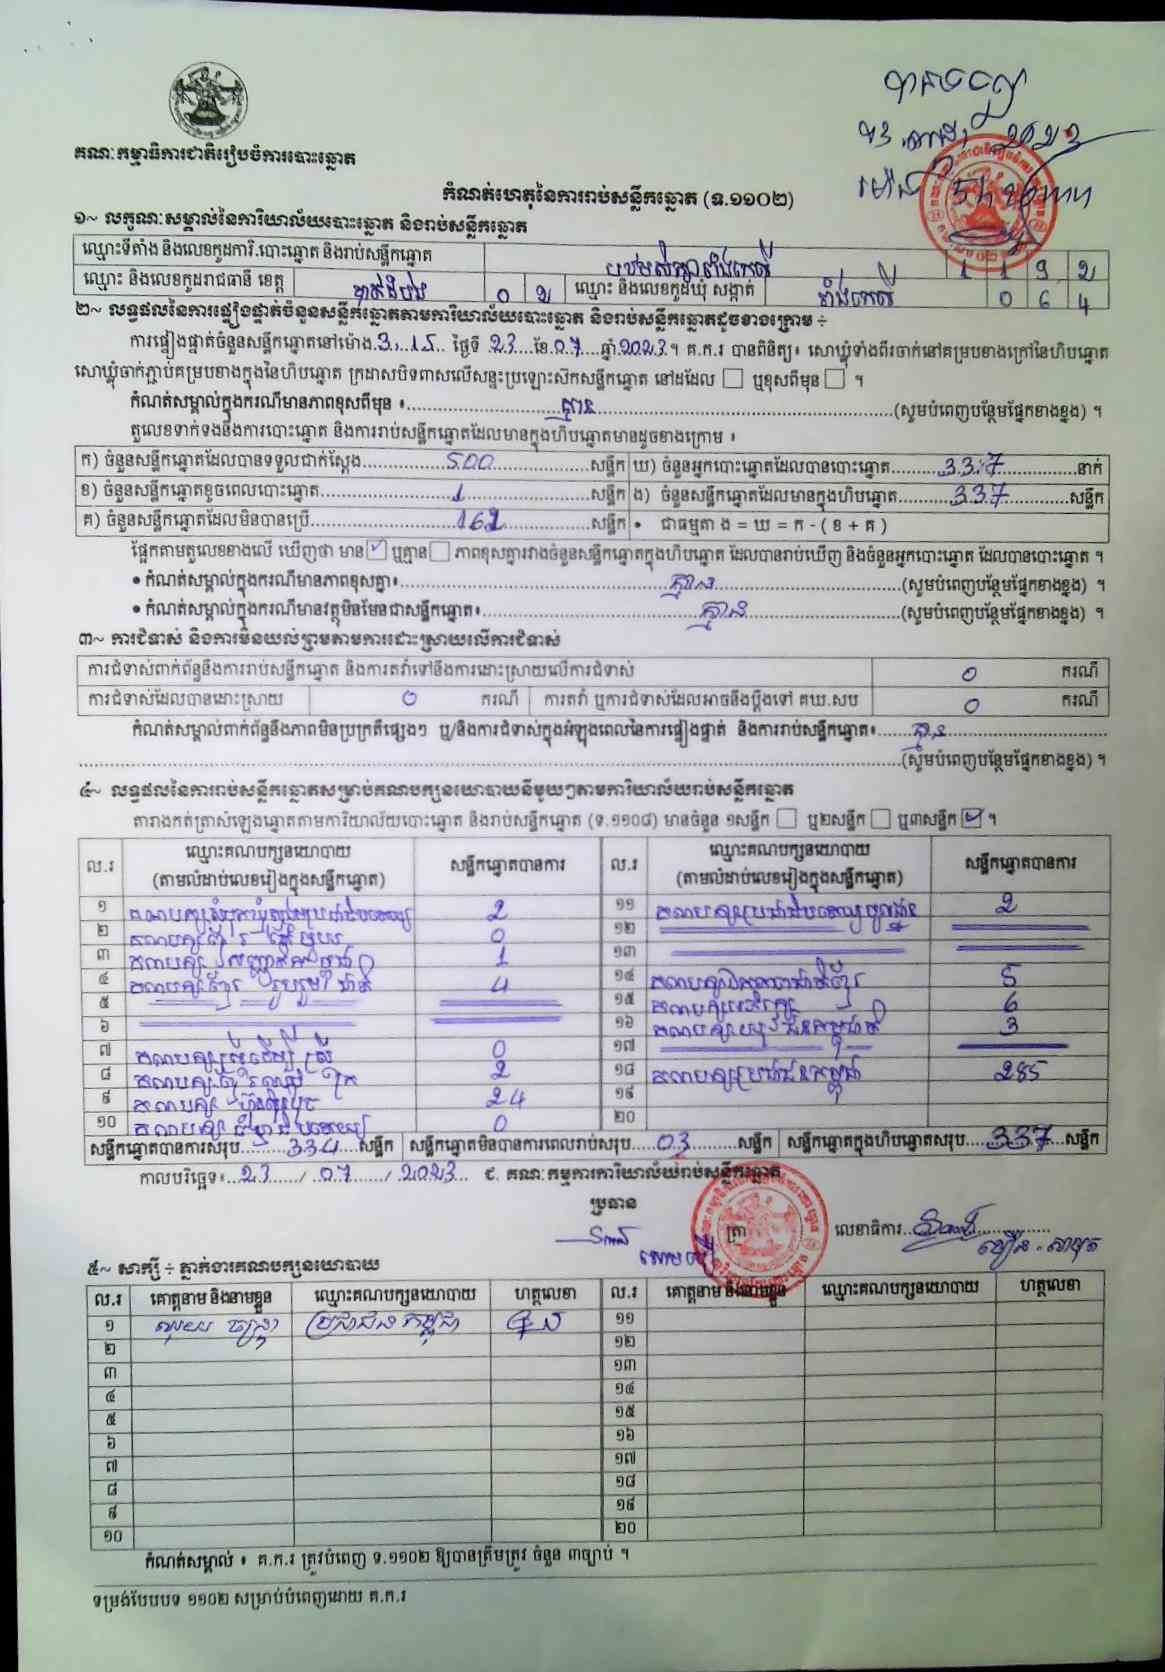 គណៈកម្មាធិការជាតិរៀបចំការបោះឆ្នោត
កំណត់ហេតុនៃការរាប់សន្លឹកឆ្នោត (ទ.១១០២)
១~ លក្ខណៈសម្គាល់នៃការិយាល័យបោះឆ្នោត និងរាប់សន្លឹកឆ្នោត
ឈ្មោះទីតាំង និងលេខកូដការិ.បោះឆ្នោត និងរាប់សន្លឹកឆ្នោត 1 1 9 2
ឈ្មោះ និងលេខកូដរាជធានី ខេត្ត បាត់ដំបង 0 2 ឈ្មោះ និងលេខកូដឃុំ សង្កាត់ 0 6 4
២~ លទ្ធផលនៃការផ្ទៀងផ្ទាត់ចំនួនសន្លឹកឆ្នោតតាមការិយាល័យបោះឆ្នោត និងរាប់សន្លឹកឆ្នោតដូចខាងក្រោម ÷
ការផ្ទៀងផ្ទាត់ចំនួនសន្លឹកឆ្នោតនៅម៉ោង 3,15 ថ្ងៃទី 23 ខែ 07 ឆ្នាំ 2023 ។ គ.ក.រ បានពិនិត្យ៖ សោឃ្លុំទាំងពីរចាក់នៅគម្របខាងក្រៅនៃហិបឆ្នោត
សោឃ្លុំចាក់ភ្ជាប់គម្របខាងក្នុងនៃហិបឆ្នោត ក្រដាសបិទពាសលើសន្ទះប្រឡោះស៊កសន្លឹកឆ្នោត នៅដដែល □ ឬខុសពីមុន □ ។
កំណត់សម្គាល់ក្នុងករណីមានភាពខុសពីមុន ៖ គ្មាន (សូមបំពេញបន្ថែមផ្នែកខាងខ្នង) ។
តួលេខទាក់ទងនឹងការបោះឆ្នោត និងការរាប់សន្លឹកឆ្នោតដែលមានក្នុងហិបឆ្នោតមានដូចខាងក្រោម ៖
ក) ចំនួនសន្លឹកឆ្នោតដែលបានទទួលជាក់ស្ដែង 500 សន្លឹក ឃ) ចំនួនអ្នកបោះឆ្នោតដែលបានបោះឆ្នោត 337 នាក់
ខ) ចំនួនសន្លឹកឆ្នោតខូចពេលបោះឆ្នោត 1 សន្លឹក ង) ចំនួនសន្លឹកឆ្នោតដែលមានក្នុងហិបឆ្នោត 337 សន្លឹក
គ) ចំនួនសន្លឹកឆ្នោតដែលមិនបានប្រើ 162 សន្លឹក • ជាធម្មតា ង = ឃ = ក - ( ខ + គ )
ផ្អែកតាមតួលេខខាងលើ ឃើញថា មាន ☑ ឬគ្មាន □ ភាពខុសគ្នារវាងចំនួនសន្លឹកឆ្នោតក្នុងហិបឆ្នោត ដែលបានរាប់ឃើញ និងចំនួនអ្នកបោះឆ្នោត ដែលបានបោះឆ្នោត ។
• កំណត់សម្គាល់ក្នុងករណីមានភាពខុសគ្នា៖ គ្មាន (សូមបំពេញបន្ថែមផ្នែកខាងខ្នង) ។
• កំណត់សម្គាល់ក្នុងករណីមានវត្ថុមិនមែនជាសន្លឹកឆ្នោត៖ គ្មាន (សូមបំពេញបន្ថែមផ្នែកខាងខ្នង) ។
៣~ ការជំទាស់ និងការមិនយល់ព្រមតាមការដោះស្រាយលើការជំទាស់
ការជំទាស់ពាក់ព័ន្ធនឹងការរាប់សន្លឹកឆ្នោត និងការតវ៉ាទៅនឹងការដោះស្រាយលើការជំទាស់ 0 ករណី
ការជំទាស់ដែលបានដោះស្រាយ 0 ករណី ការតវ៉ា ឬការជំទាស់ដែលអាចនឹងប្ដឹងទៅ គឃ.សប 0 ករណី
កំណត់សម្គាល់ពាក់ព័ន្ធនឹងភាពមិនប្រក្រតីផ្សេងៗ ឬ/និងការជំទាស់ក្នុងអំឡុងពេលនៃការផ្ទៀងផ្ទាត់ និងការរាប់សន្លឹកឆ្នោត៖ គ្មាន
(សូមបំពេញបន្ថែមផ្នែកខាងខ្នង) ។
៤~ លទ្ធផលនៃការរាប់សន្លឹកឆ្នោតសម្រាប់គណបក្សនយោបាយនីមួយៗតាមការិយាល័យរាប់សន្លឹកឆ្នោត
តារាងកត់ត្រាសំឡេងឆ្នោតតាមការិយាល័យបោះឆ្នោត និងរាប់សន្លឹកឆ្នោត (ទ.១១០៨) មានចំនួន ១សន្លឹក □ ឬ២សន្លឹក □ ឬ៣សន្លឹក ☑ ។
ល.រ ឈ្មោះគណបក្សនយោបាយ (តាមលំដាប់លេខរៀងក្នុងសន្លឹកឆ្នោត) សន្លឹកឆ្នោតបានការ ល.រ ឈ្មោះគណបក្សនយោបាយ (តាមលំដាប់លេខរៀងក្នុងសន្លឹកឆ្នោត) សន្លឹកឆ្នោតបានការ
១ 2 ១១ 2
២ គណបក្ស 0 ១២
៣ គណបក្ស 1 ១៣
៤ គណបក្សខ្មែររួបរួមជាតិ 4 ១៤ គណបក្ស 5
៥ ១៥ គណបក្ស 6
៦ ១៦ គណបក្សយុវជនកម្ពុជា 3
៧ គណបក្ស 0 ១៧
៨ គណបក្ស 2 ១៨ គណបក្សប្រជាជនកម្ពុជា 285
៩ គណបក្ស 24 ១៩
១០ គណបក្ស 0 ២០
សន្លឹកឆ្នោតបានការសរុប 334 សន្លឹក សន្លឹកឆ្នោតមិនបានការពេលរាប់សរុប 03 សន្លឹក សន្លឹកឆ្នោតក្នុងហិបឆ្នោតសរុប 337 សន្លឹក
កាលបរិច្ឆេទ៖ 23 / 07 / 2023 ៩. គណៈកម្មការការិយាល័យរាប់សន្លឹកឆ្នោត
ប្រធាន
ត្រា លេខាធិការ
៥~ សាក្សី ÷ ភ្នាក់ងារគណបក្សនយោបាយ
ល.រ គោត្តនាម និងនាមខ្លួន ឈ្មោះគណបក្សនយោបាយ ហត្ថលេខា ល.រ គោត្តនាម និងនាមខ្លួន ឈ្មោះគណបក្សនយោបាយ ហត្ថលេខា
១ ប្រជាជនកម្ពុជា ១១
២ ១២
៣ ១៣
៤ ១៤
៥ ១៥
៦ ១៦
៧ ១៧
៨ ១៨
៩ ១៩
១០ ២០
កំណត់សម្គាល់ ៖ គ.ក.រ ត្រូវបំពេញ ទ.១១០២ ឱ្យបានត្រឹមត្រូវ ចំនួន ៣ច្បាប់ ។
ទម្រង់បែបបទ ១១០២ សម្រាប់បំពេញដោយ គ.ក.រ